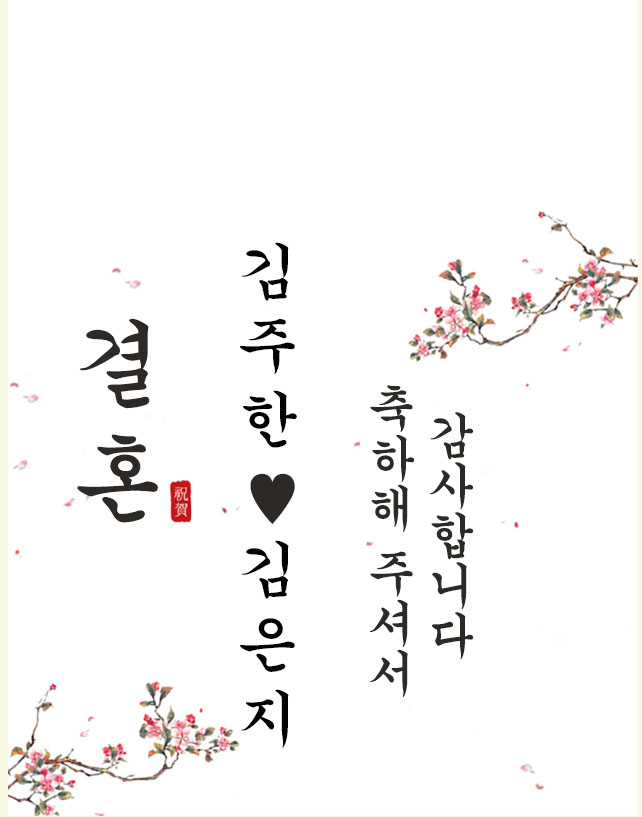 결혼
祝賀
김주한♥김은지
축하해 주셔서
감사합니다